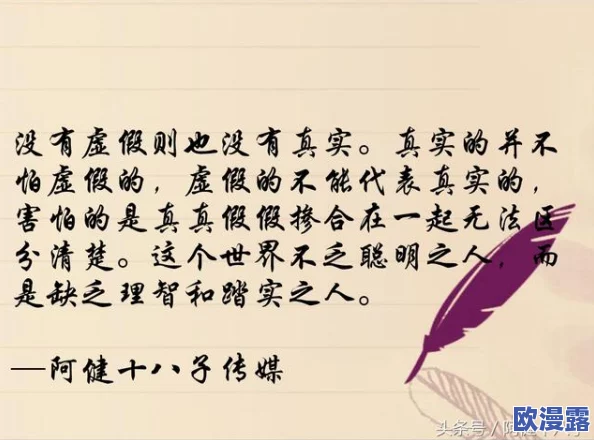 没有虚假则也没有真实。真实的并不
怕虚假的，虚假的不能代表真实的，
害怕的是真真假假掺合在一起无法区
分清楚。这个世界不乏聪明之人，而
是缺乏理智和踏实之人。
—阿健十八子传媒
头条号/阿健十八子
欧漫露